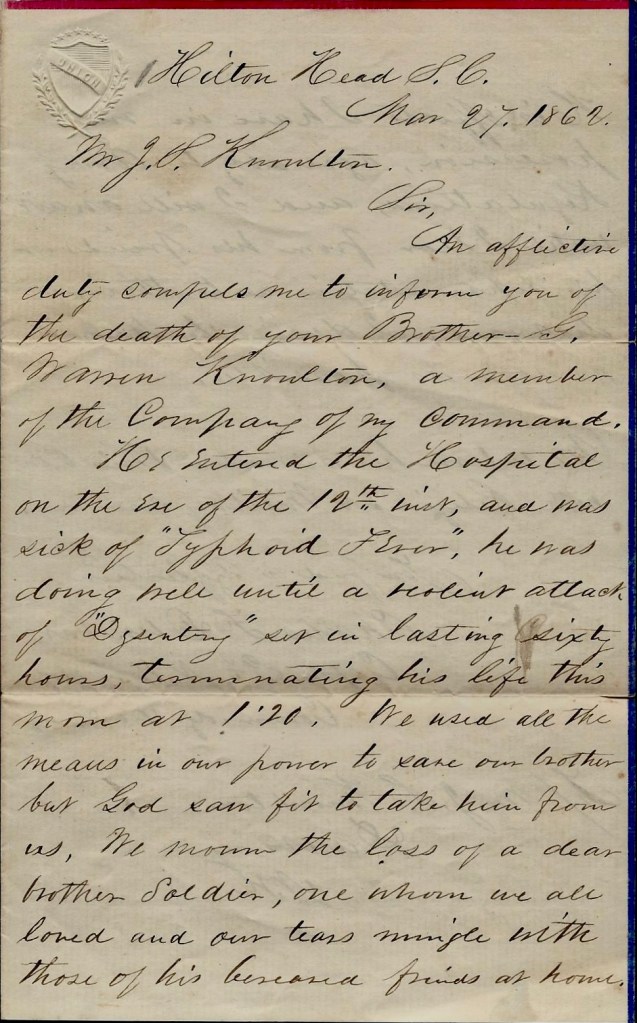 UNION
Hilton Head S. C.
Mar 27. 1862.
Mr J. S. Knoulton.
Sir,
An afflictive
duty compels me to inform you of
the death of your Brother - G.
Warren Knoulton, a member
of the Company of my command.
He Entered the Hospital
on the Eve of the 12th inst, and was
sick of "Typhoid Fever", he was
doing well until a violent attack
of "Dysentery" set in lasting sixty
hours, terminating his life this
morn at 1'20. We used all the
means in our power to save our brother
but God saw fit to take him from
us, We mourn the loss of a dear
brother Soldier, one whom we all
loved and our tears mingle with
those of his bereaved friends at home.